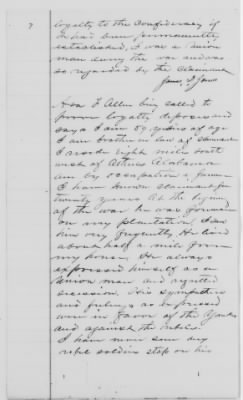 7
loyalty to the Confideracy if
it had been permanently
established, I was a union
man during the war and was
so regarded by the claimant
James
Allen being called to
prove loyalty deposes and
says I am 59 years of age
I am brother in law of claimant
I reside eight miles south
west of Athens Alabama
am by occupation a farmer
I have known claimant for
twenty years At the beginning
of the war he was foreman
on my plantation, I saw
him very frequently He lived
about half a mile from
my house. He always
expressed himself as a
Union man and
secession. His sympathies
and feelings as expressed
were in favor of the Yanks
and against the rebels.
I have never seen any
rebel soldiers stop on his